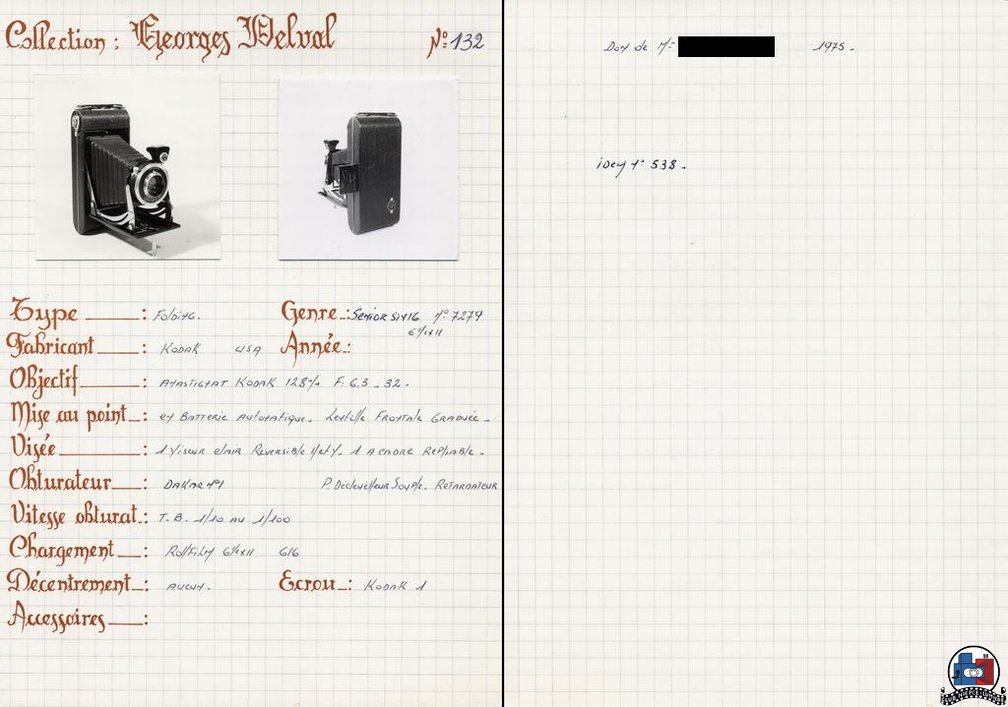 Collection : Georges Delval N° 132
Type : Folding.
Genre : Senior Six 16 N° 7279
6½x11
Fabricant : Kodak USA
Année :
Objectif : Anastigmat Kodak 128 m/m F. 6.3 - 32.
Mise au point : en Batterie Automatique. Lentille Frontale Graduée -
Visée : 1 Viseur clair Reversible H et V. 1 A cadre Repliable -
Obturateur : Dakar N°1 P. Declencheur Souple. Retardateur
Vitesse obturat. : T. B. 1/10 au 1/100
Chargement : Rollfilm 6½x11 616
Décentrement : Aucun.
Ecrou : Kodak 1
Accessoires :
Don de Mr 1975 -
idem N° 538 -